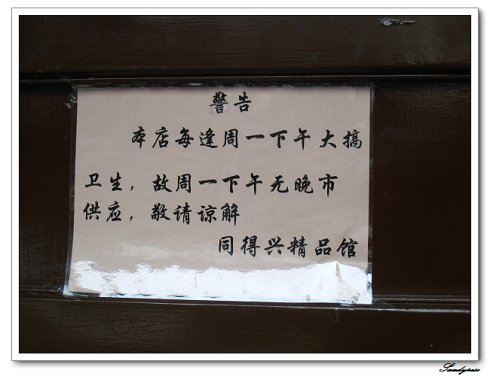 警告
本店每逢周一下午大搞
卫生，故周一下午无晚市
供应，敬请谅解
同得兴精品馆
Sandyrose